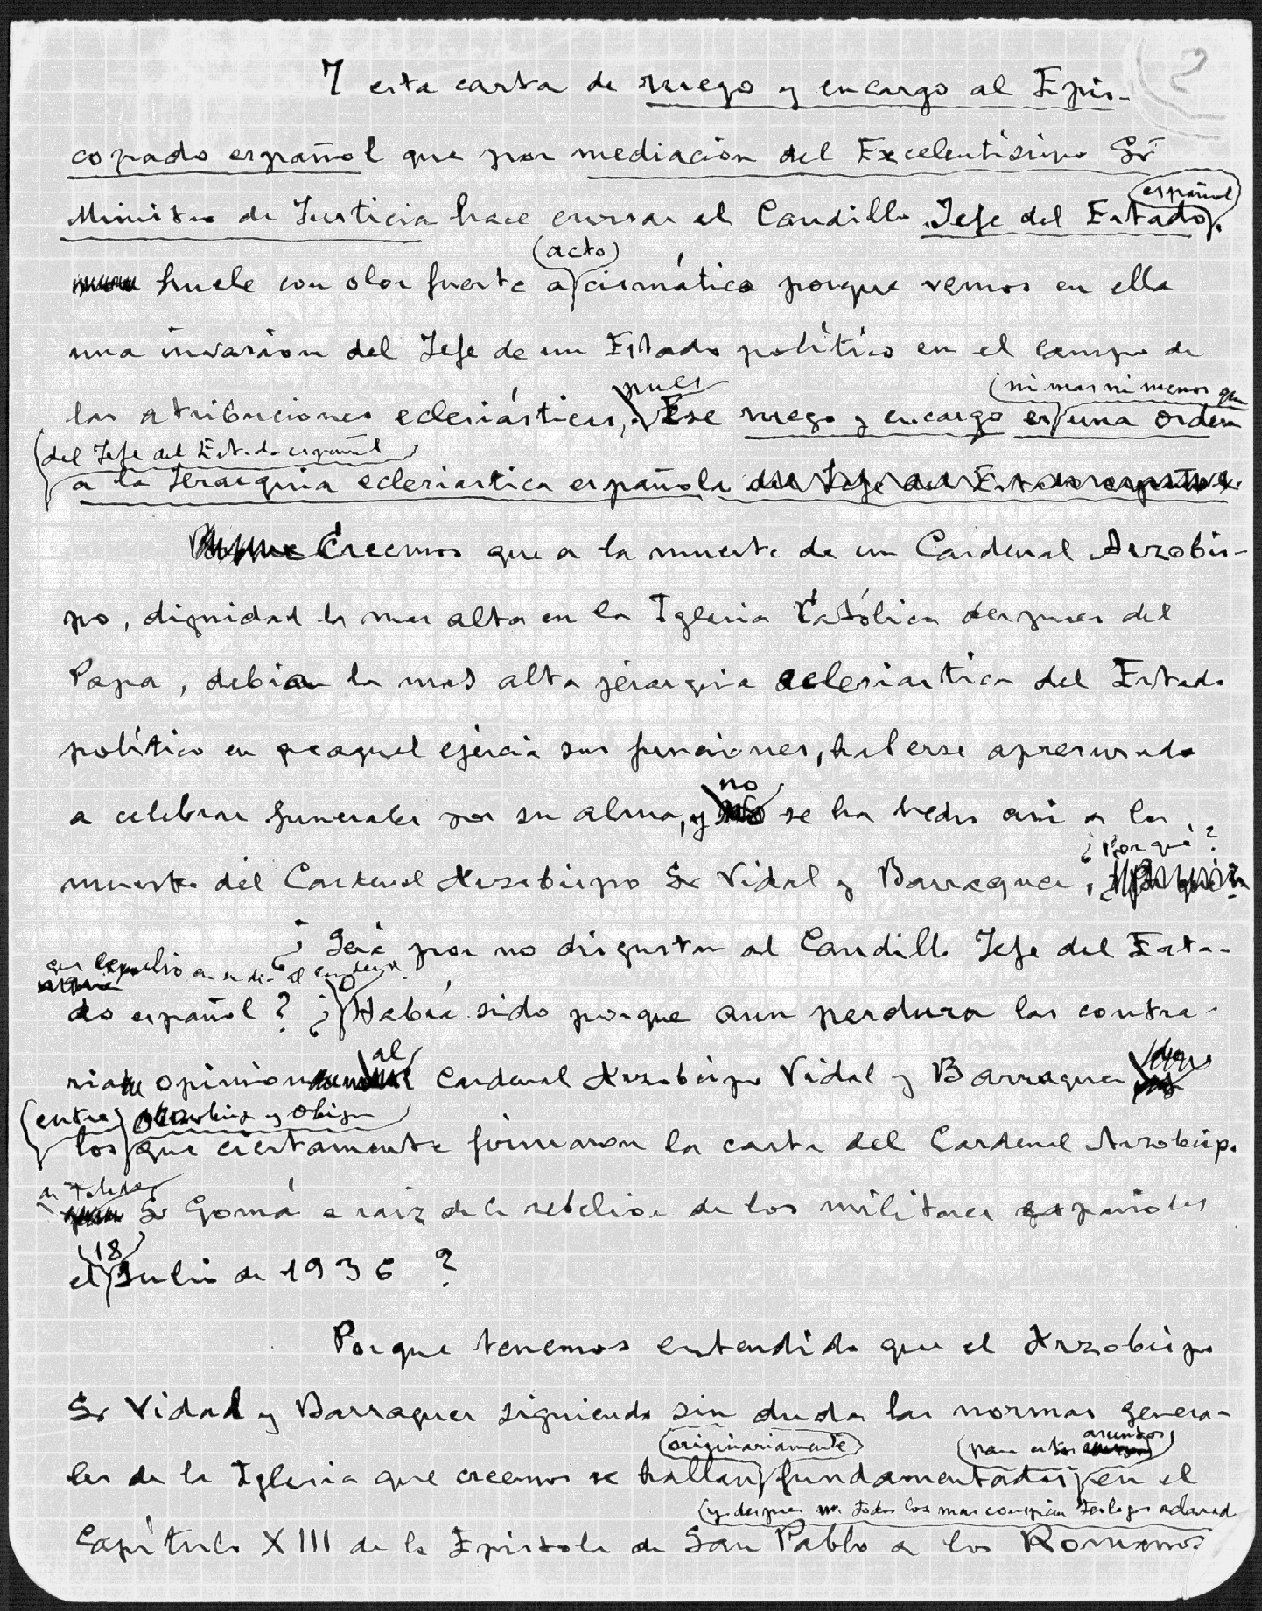 2
Y esta carta de ruego y encargo al Epis-
copado español que por mediación del Excelentísimo Sr
español
Ministro de Justicia hace cursar el Caudillo Jefe del Estado,
(acto)
huele con olor fuerte a cismático porque vemos en ella
una invasión del Jefe de un Estado político en el campo de
pues (ni mas ni menos que
las atribuciones eclesiásticas, Ese ruego y encargo es una orden
(del Jefe del Estado español
a la Jerarquia eclesiastica española del Jefe del Estado español.
Creemos que a la muerte de un Cardenal Arzobis-
po, dignidad la mas alta en la Iglesia Católica despues del
Papa, debia la mas alta jerarquia eclesiastica del Estado
político en que aquel ejercia sus funciones, haberse apresurado
no
a celebrar funerales por su alma, y se ha hecho asi a la
¿Por qué?
muerte del Cardenal Arzobispo Sr Vidal y Barraquer,
¿Será por no disgustar al Caudillo Jefe del Esta-
do español? ¿O Habrá sido porque aun perdura las contra-
al
rias opinion Cardenal Arzobispo Vidal y Barraquer de
(entre) Arzobispos y Obispos
los que ciertamente firmaron la carta del Cardenal Arzobispo
de Toledo
Sr Gomá a raiz de la rebelion de los militares españoles
18
el Julio de 1936?
Porque tenemos entendido que el Arzobispo
Sr Vidal y Barraquer siguiendo sin duda las normas genera-
(originariamente) (para estos asuntos)
les de la Iglesia que creemos se hallan fundamentadas en el
(y despues todos los mas teologos
Capítulo XIII de la Epistola de San Pablo a los Romanos